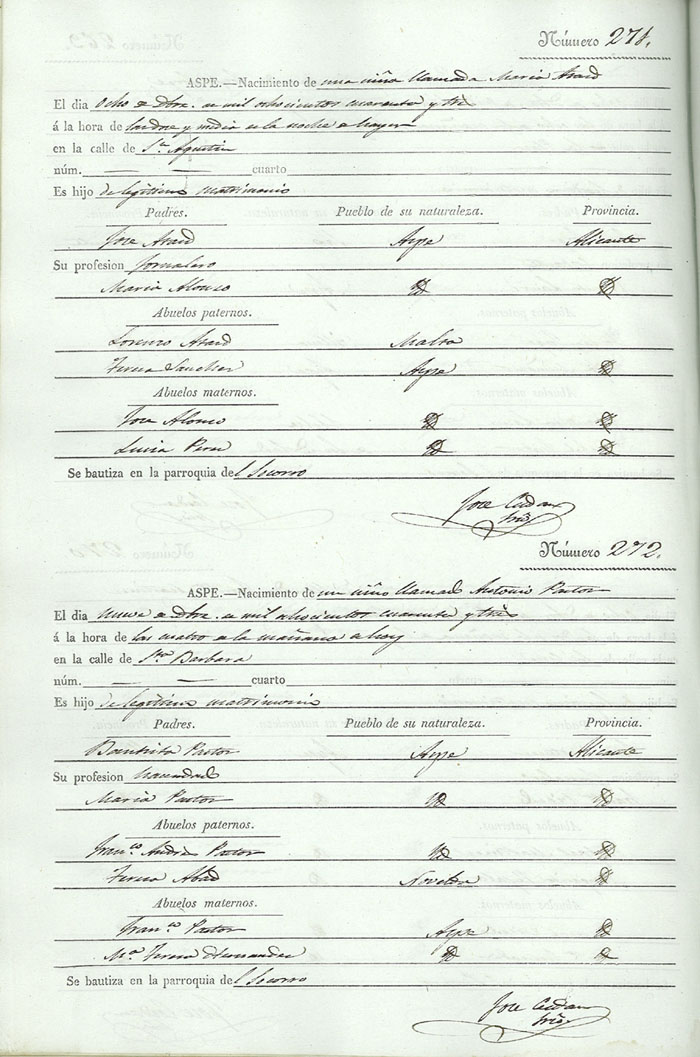 Número 271.
ASPE.—Nacimiento de una niña llamada Maria Azad
El dia Ocho de Dbre. de mil ochocientos cuarenta y tres
á la hora de las doce y media de la noche de hayer
en la calle de Sn. Agustin
núm. — — cuarto
Es hijo de legitimo matrimonio
Padres. Pueblo de su naturaleza. Provincia.
Jose Azad Aspe Alicante
Su profesion Jornalero
Maria Alonso Id Id
Abuelos paternos.
Lorenzo Azad
Teresa Sanchez Aspe Id
Abuelos maternos.
Jose Alonso Id Id
Lucia Perez Id Id
Se bautiza en la parroquia del Socorro
Jose Cerdan
Srio
Número 272.
ASPE.—Nacimiento de un niño llamado Antonio Pastor
El dia nueve de Dbre. de mil ochocientos cuarenta y tres
á la hora de las cuatro de la mañana de hoy
en la calle de Sta. Barbara
núm. — — cuarto
Es hijo de legitimo matrimonio
Padres. Pueblo de su naturaleza. Provincia.
Bautista Pastor Aspe Alicante
Su profesion hacendado
Maria Pastor Id Id
Abuelos paternos.
Franco. Andres Pastor Id Id
Teresa Abad Novelda Id
Abuelos maternos.
Franco. Pastor Aspe Id
Ma. Teresa Hernandez Id Id
Se bautiza en la parroquia del Socorro
Jose Cerdan
Srio